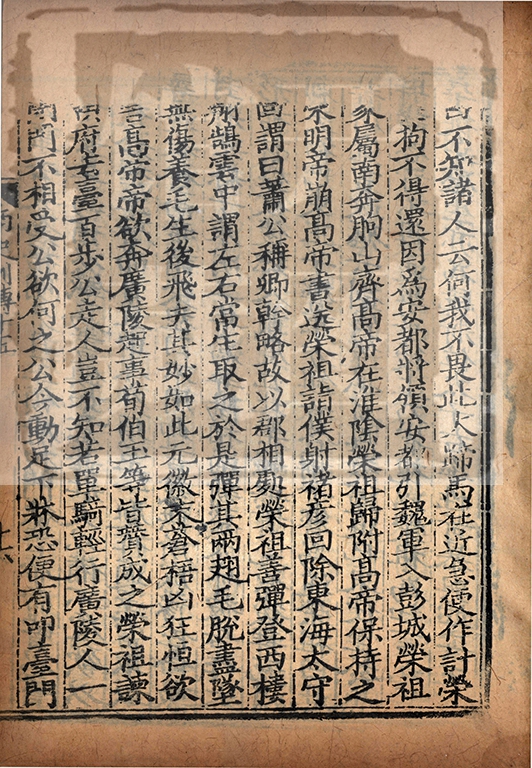 不知諸人云何我不畏此大蹄馬在近急便作計榮
拘不得還因爲安都將領安都引魏軍入彭城榮祖
家屬南奔朐山齊高帝在淮陰榮祖歸附高帝保持之
宋明帝崩高帝書送榮祖詣僕射褚彦回除東海太守
回謂曰蕭公稱卿幹略故以郡相處榮祖善彈登西樓
翔鵠雲中謂左右當生取之於是彈其兩翅毛脫盡墜
無傷養毛生後飛去其妙如此元徽末蒼梧凶狂恒欲
害高帝帝欲奔廣陵起事荀伯玉等皆贊成之榮祖諫
府去臺百步公走人豈不知若單騎輕行廣陵人一
門不相受公欲何之公今動足下牀恐便有叩臺門
南史列傳十五